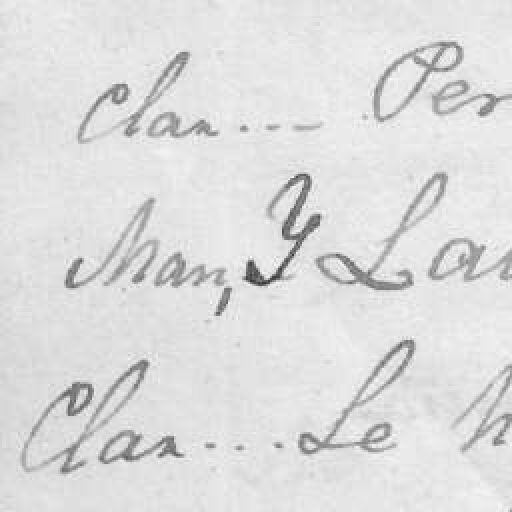 Clan ... Per
Man, Y Lau
Clan ... Le